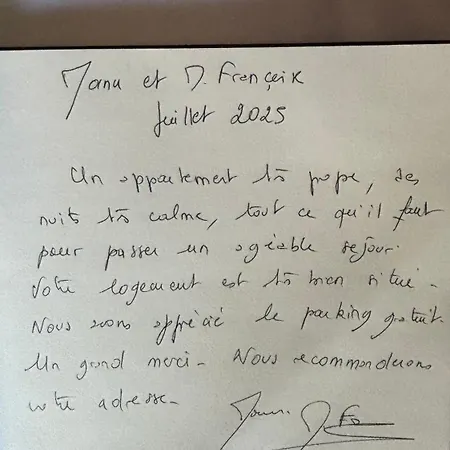 Manu et D. Françoix
Juillet 2025
Un appartement très propre, des
nuits très calme, tout ce qu'il faut
pour passer un agréable séjour.
Votre logement est très bien situé -
Nous avons apprécié le parking gratuit.
Un grand merci - Nous recommanderons
votre adresse -